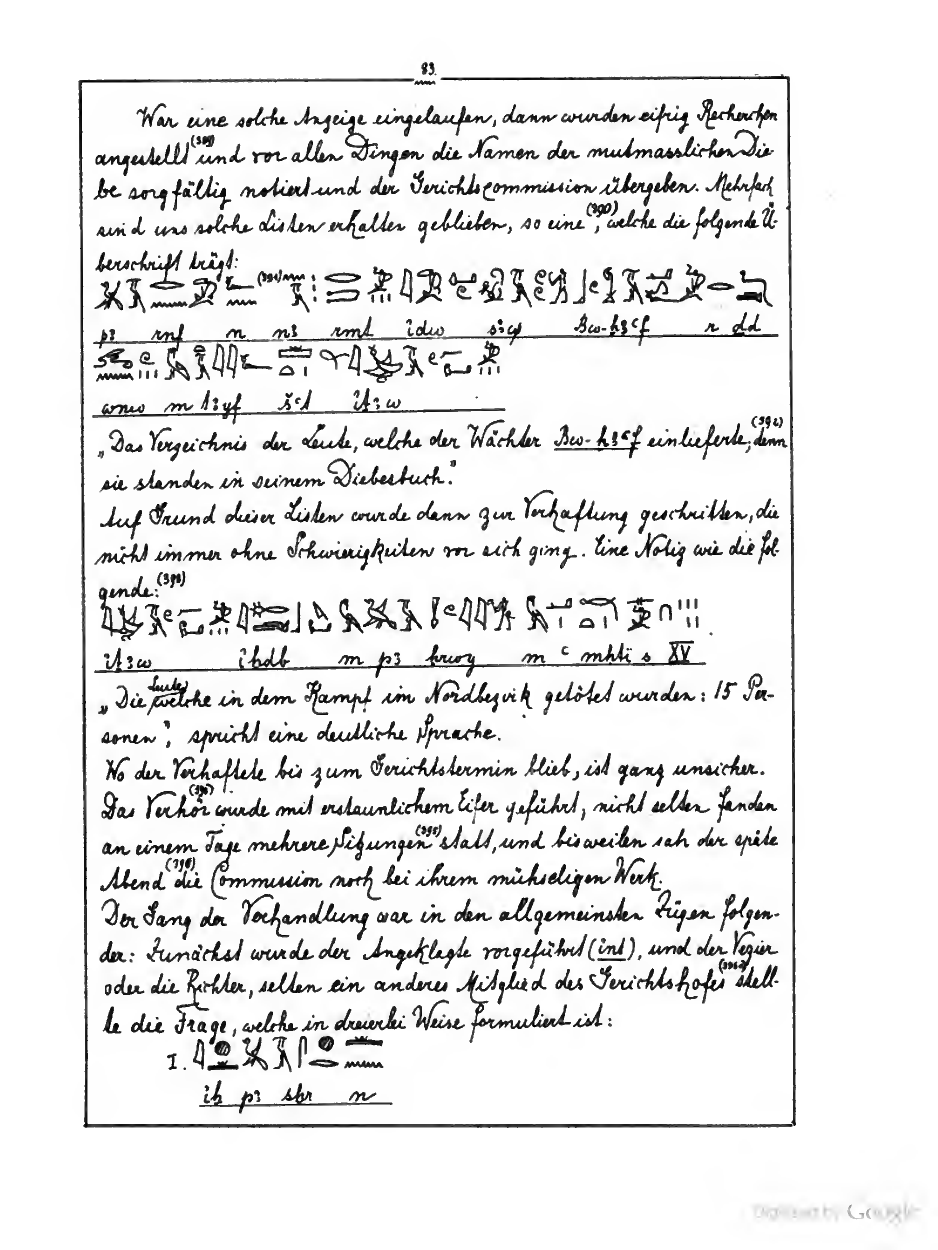 83.
War eine solche Anzeige eingelaufen, dann wurden eifrig Recherchen
angestellt (389) und vor allen Dingen die Namen der mutmasslichen Die-
be sorgfältig notiert und der Gerichtscommission übergeben. Mehrfach
sind uns solche Listen erhalten geblieben, so eine (390), welche die folgende Ü-
berschrift trägt:
(391)
p3 rnf n n3 rmt Bw-h3ꜥf r dd
wnw m šꜥt it3w
„Das Verzeichnis der Leute, welche der Wächter Bw-h3ꜥf einlieferte, (392) denn
sie standen in seinem Diebesbuch."
Auf Grund dieser Listen wurde dann zur Verhaftung geschritten, die
nicht immer ohne Schwierigkeiten vor sich ging. Eine Notiz wie die fol-
gende: (393)
it3w ihdb m p3 hrwy m ꜥ mhti s XV
„Die Leute welche in dem Kampf im Nordbezirk getötet wurden: 15 Per-
sonen", spricht eine deutliche Sprache.
Wo der Verhaftete bis zum Gerichtstermin blieb, ist ganz unsicher.
Das Verhör wurde mit erstaunlichem Eifer geführt, nicht selten fanden
an einem Tage mehrere Sitzungen (395) statt, und bisweilen sah der späte
Abend (396) die Commission noch bei ihrem mühseligen Werk.
Der Gang der Verhandlung war in den allgemeinsten Zügen folgen-
der: Zunächst wurde der Angeklagte vorgeführt (int), und der Vezier
oder die Richter, selten ein anderes Mitglied des Gerichtshofes stell-
te die Frage, welche in dreierlei Weise formuliert ist:
I.
ih p3 shr n
Digitized by Google